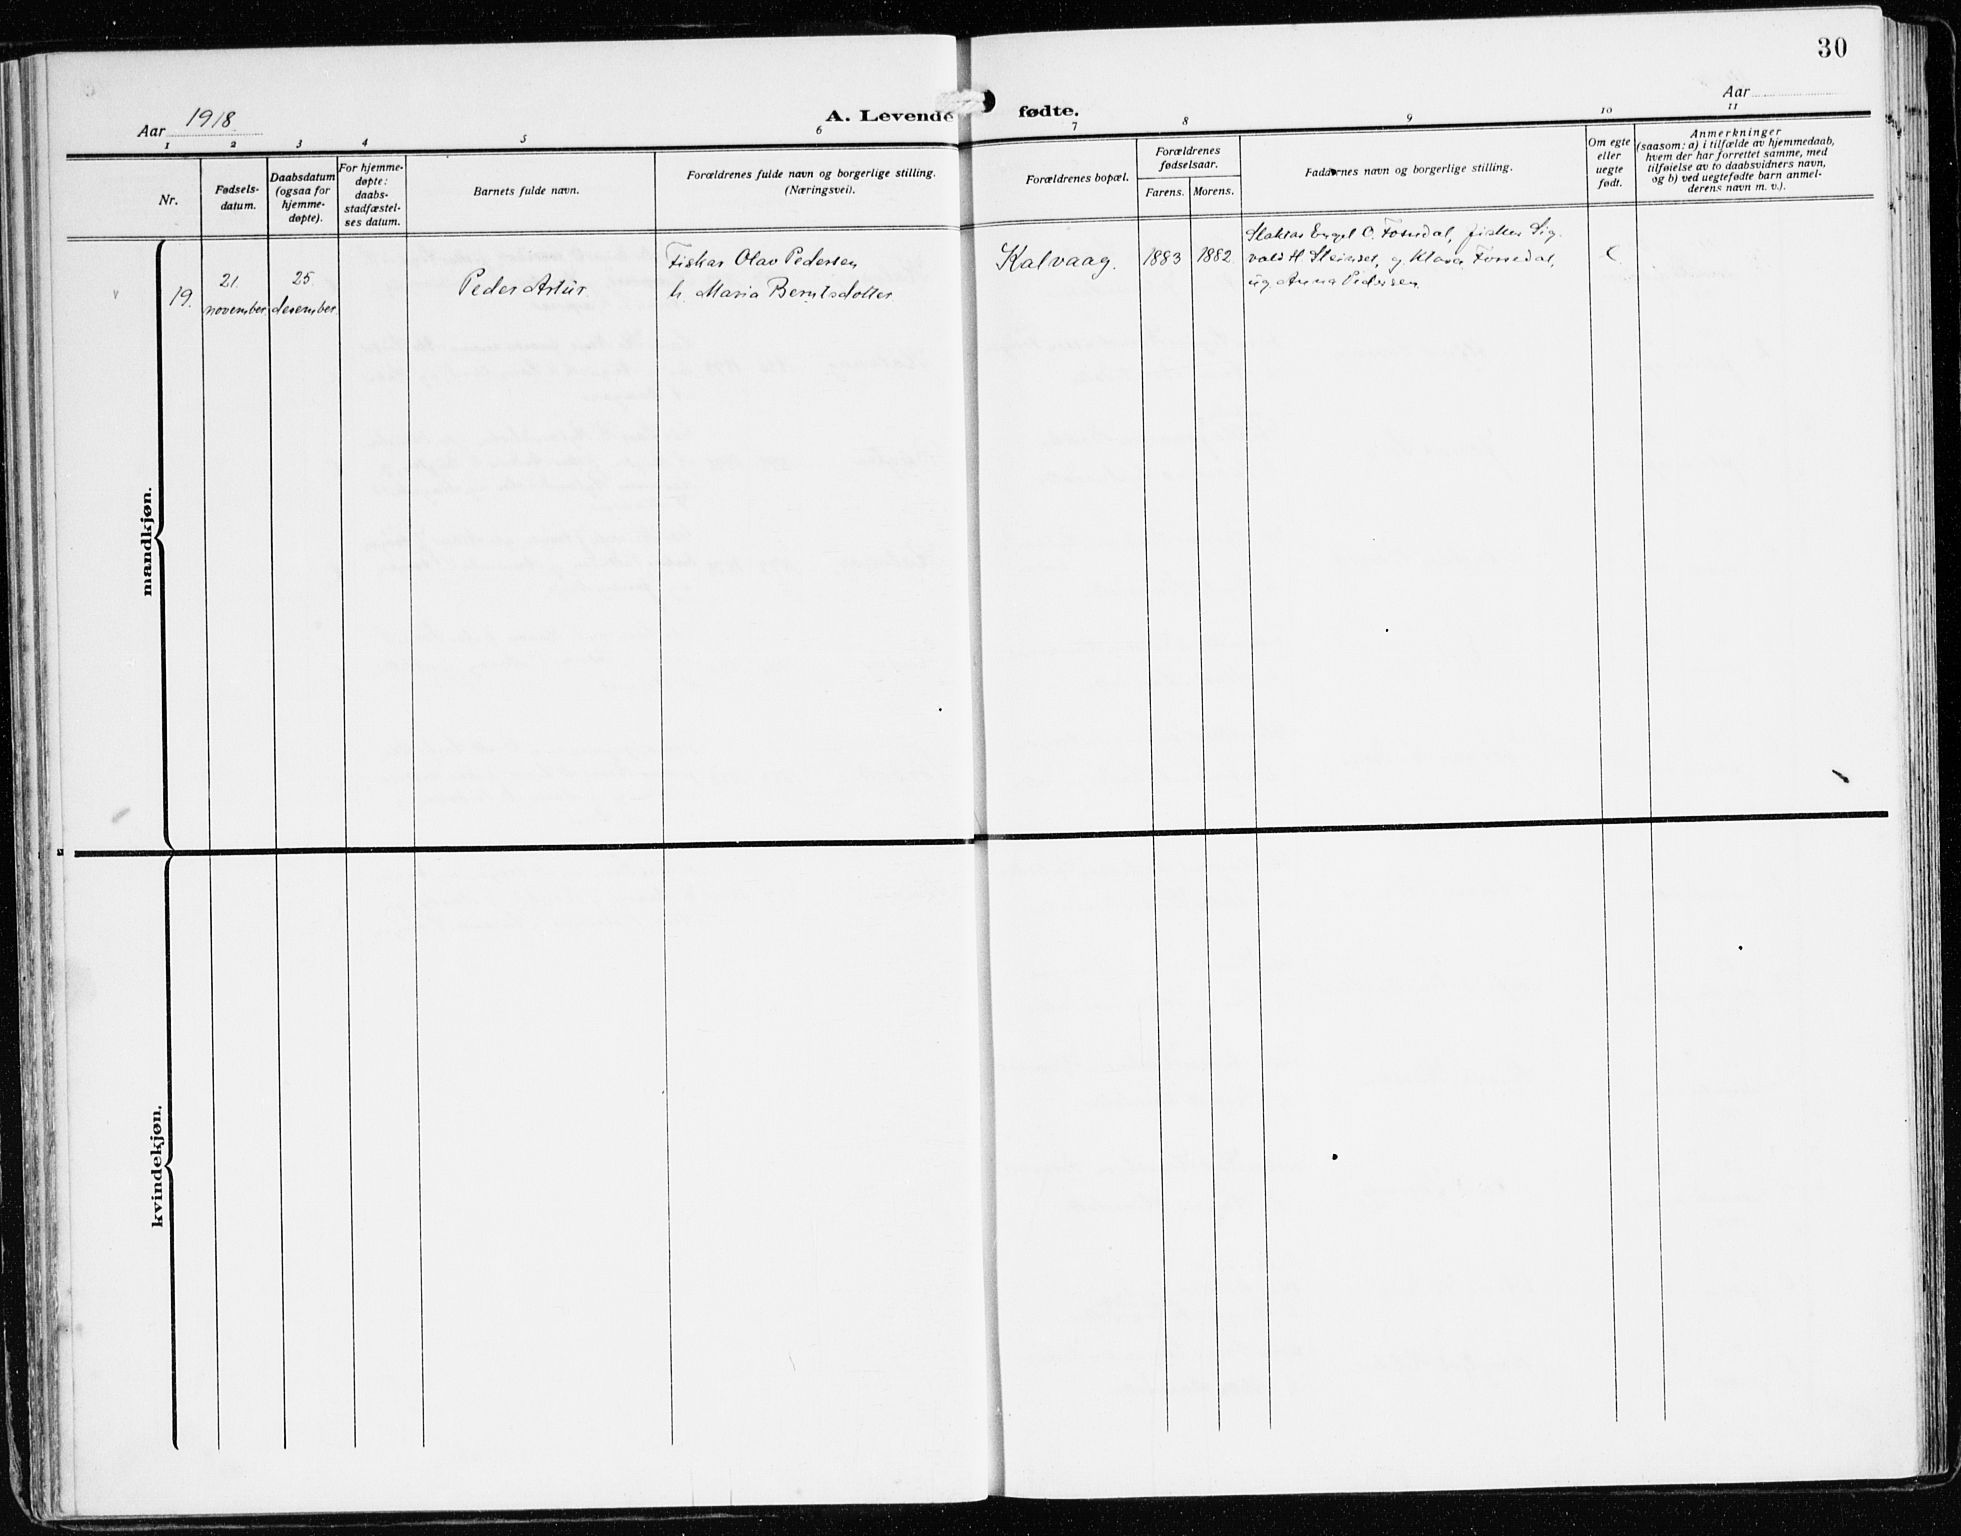 30
Aar 1918.
A. Levende fødte.
Aar
1 2 3 4 5 6 7 8 9 10 11
Nr.
Fødsels-
datum.
Daabsdatum
(ogsaa for
hjemme-
døpte).
For hjemme-
døpte:
daabs-
stadfæstel-
ses datum.
Barnets fulde navn.
Forældrenes fulde navn og borgerlige stilling.
(Næringsvei).
Forældrenes bopæl.
Forældrenes
fødselsaar.
Farens. Morens.
Faddernes navn og borgerlige stilling.
Om egte
eller
uegte
født.
Anmerkninger
(saasom: a) i tilfælde av hjemmedaab,
hvem der har forrettet samme, med
tilføielse av to daabsvidners navn,
og b) ved uegtefødte barn anmel-
derens navn m. v.).
mandkjøn.
19.
21.
november
25.
desember
Peder Artur
Fiskar Olav Pedersen
h. Maria Berntsdotter
Kalvaag.
1883
1882
Engel O. Fossedal, fisker Sig.
vald H. Steinset, og Klara Fossedal,
ug. Anna Pedersen.
kvindekjøn.